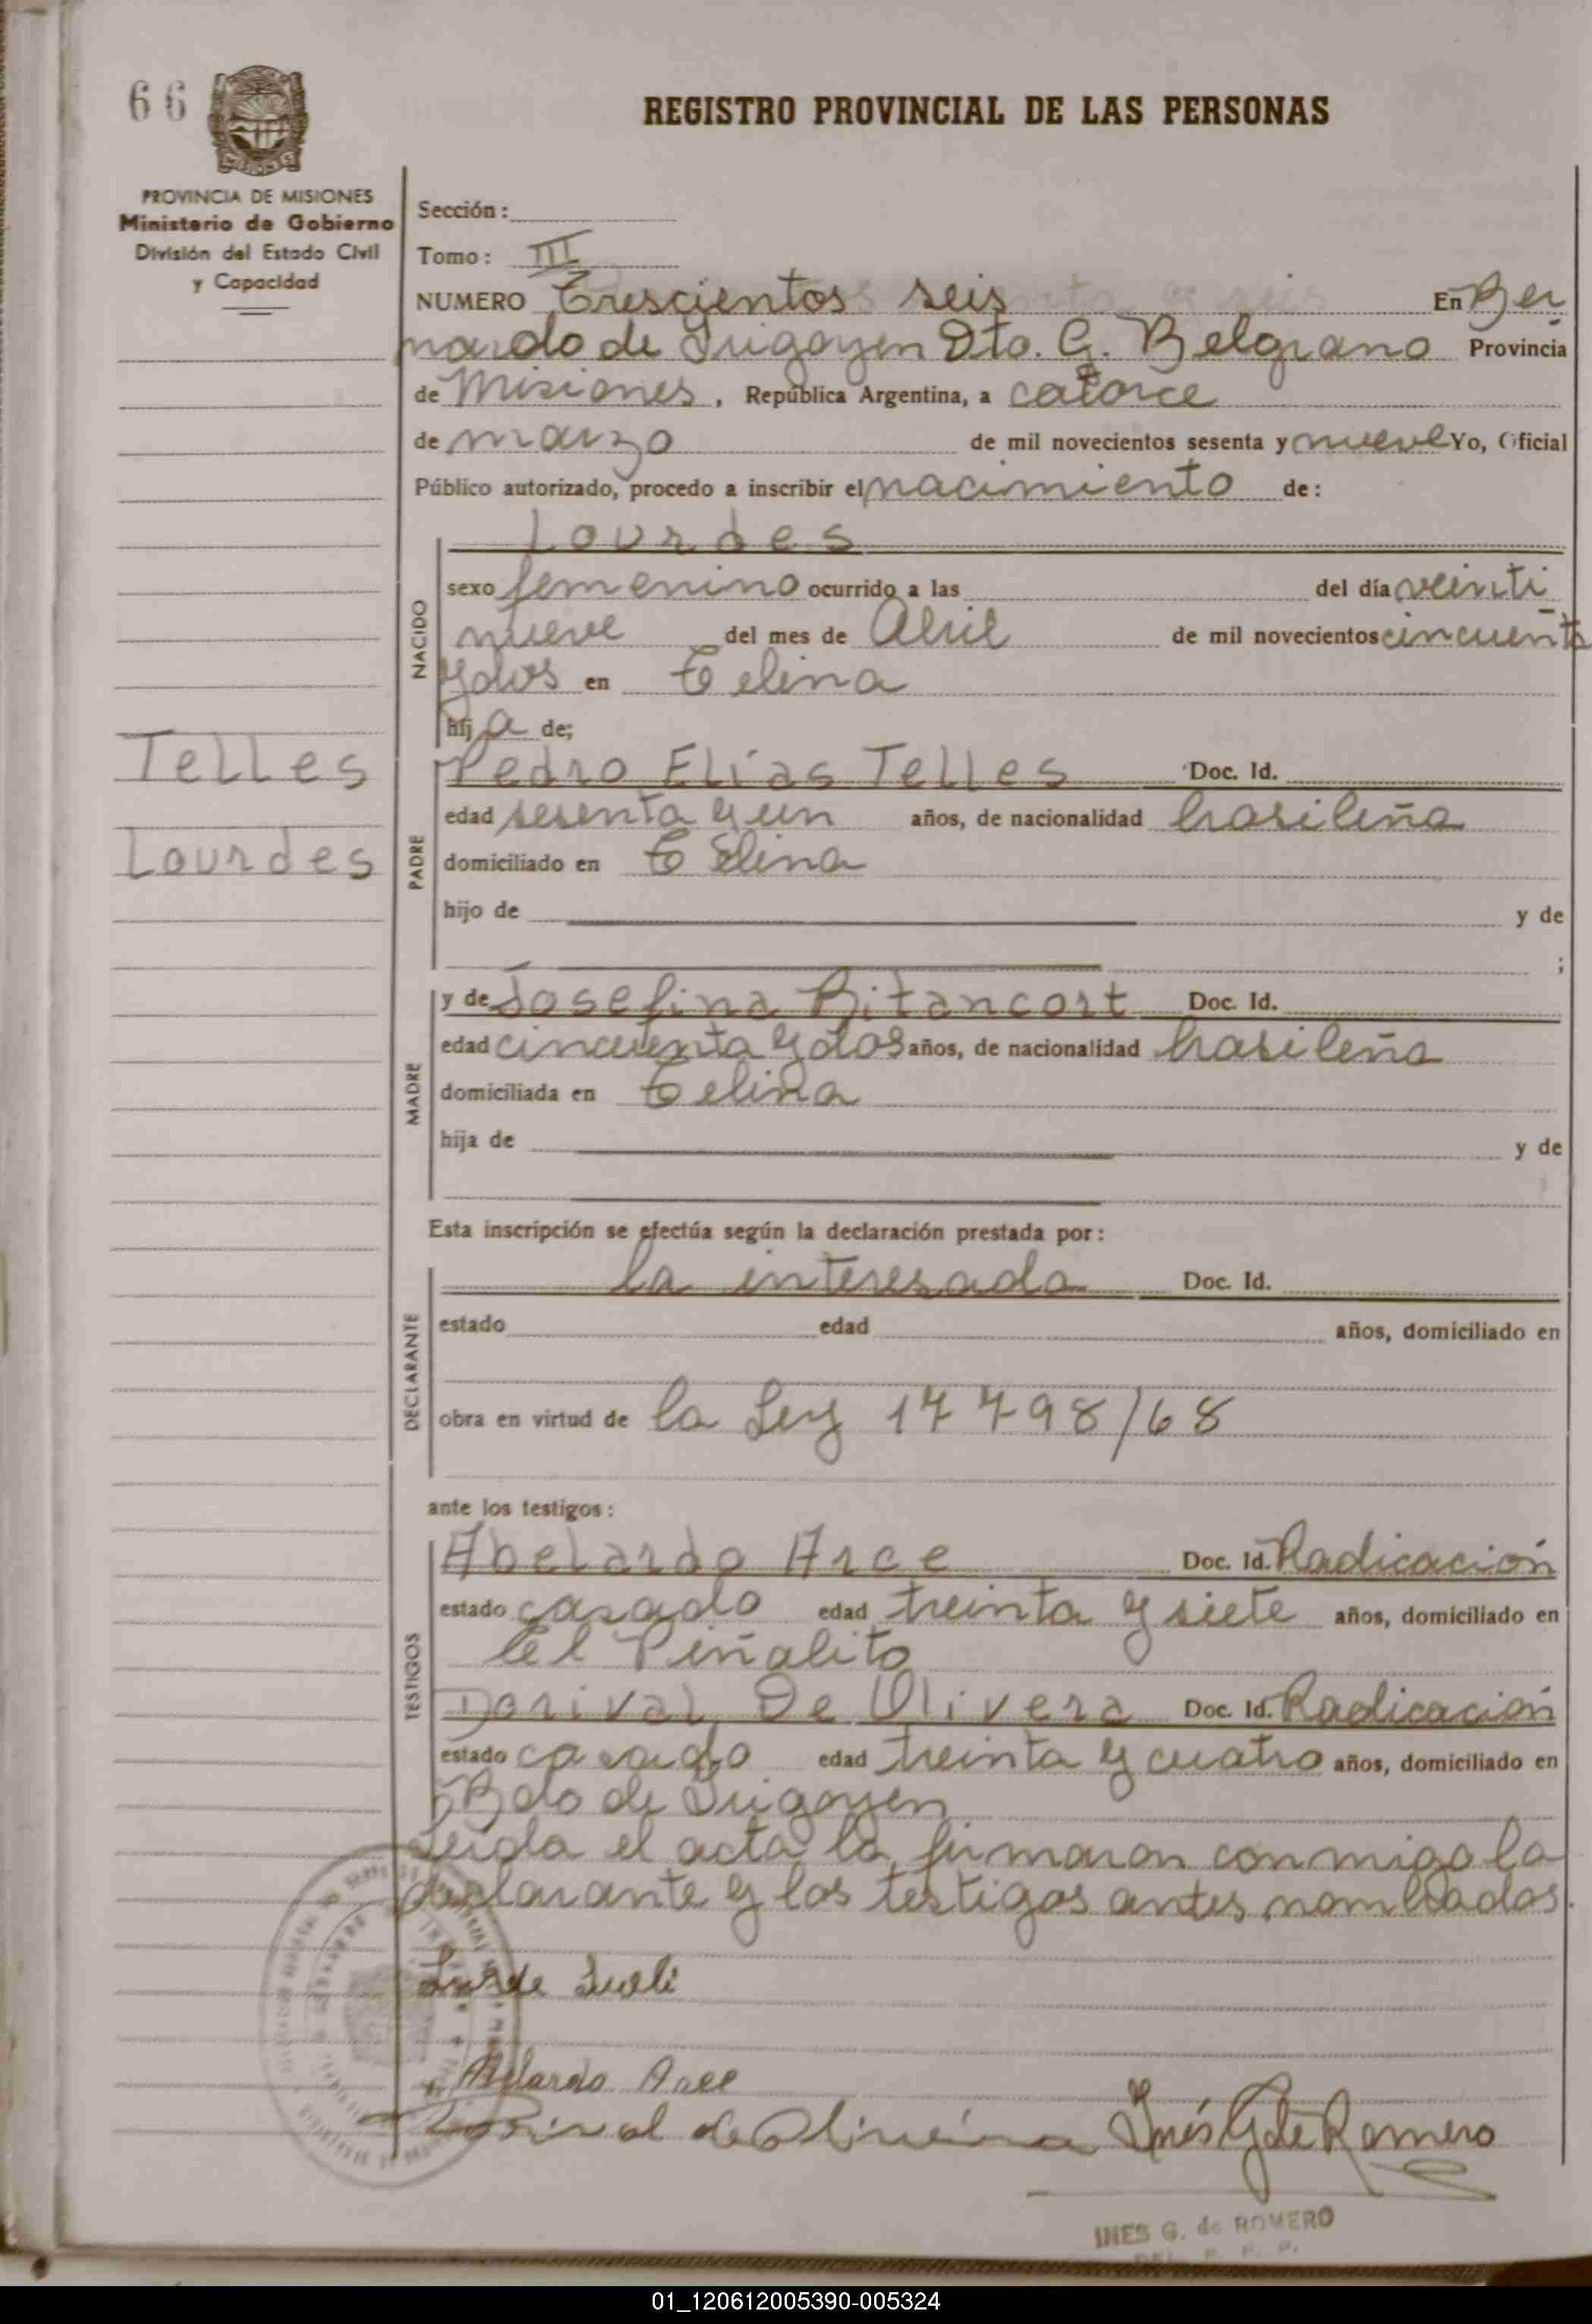 66
REGISTRO PROVINCIAL DE LAS PERSONAS
PROVINCIA DE MISIONES
Ministerio de Gobierno
División del Estado Civil
y Capacidad
Sección:
Tomo: III
NUMERO Trescientos seis En Ber
nardo de Irigoyen Dto. G. Belgrano Provincia
de Misiones, República Argentina, a catorce
de marzo de mil novecientos sesenta y nueve Yo, Oficial
Público autorizado, procedo a inscribir el nacimiento de:
Lourdes
NACIDO
sexo femenino ocurrido a las del día veinti
nueve del mes de Abril de mil novecientos cincuenta
y dos en Celina
hij a de;
Telles
Lourdes
PADRE
Pedro Elías Telles Doc. Id.
edad sesenta y un años, de nacionalidad brasileña
domiciliado en C Elina
hijo de y de
;
MADRE
y de Josefina Bitancort Doc. Id.
edad cincuenta y dos años, de nacionalidad brasileña
domiciliada en Celina
hija de y de
Esta inscripción se efectúa según la declaración prestada por:
DECLARANTE
la interesada Doc. Id.
estado edad años, domiciliado en
obra en virtud de la Ley 17798/68
ante los testigos:
TESTIGOS
Abelardo Arce Doc. Id. Radicación
estado casado edad treinta y siete años, domiciliado en
el Piñalito
Dorival De Olivera Doc. Id. Radicación
estado casado edad treinta y cuatro años, domiciliado en
Bdo de Irigoyen
Leida el acta, la firmaron conmigo la
declarante y los testigos antes nombrados.
Lurde
Abelardo Arce
Dorival de Oliveira Inés G de Romero
INES G. de ROMERO
01_120612005390-005324